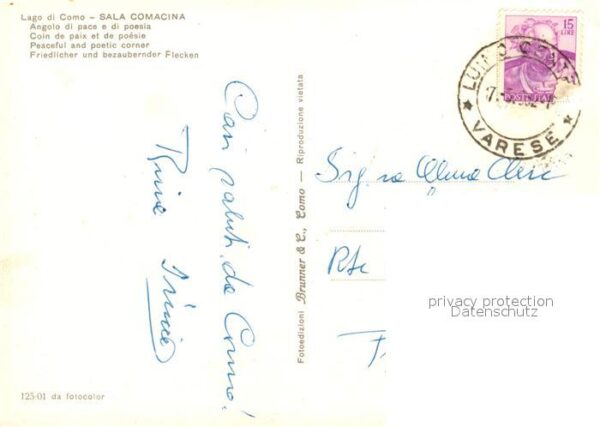 Lago di Como – SALA COMACINA
Angolo di pace e di poesia
Coin de paix et de poésie
Peaceful and poetic corner
Friedlicher und bezaubernder Flecken
15
LIRE
POSTE ITALIANE
LUINO
VARESE
Cari saluti da Como!
Fotoedizioni Brunner & C., Como – Riproduzione vietata
Sig.na Alma
privacy protection
Datenschutz
125-01 da fotocolor